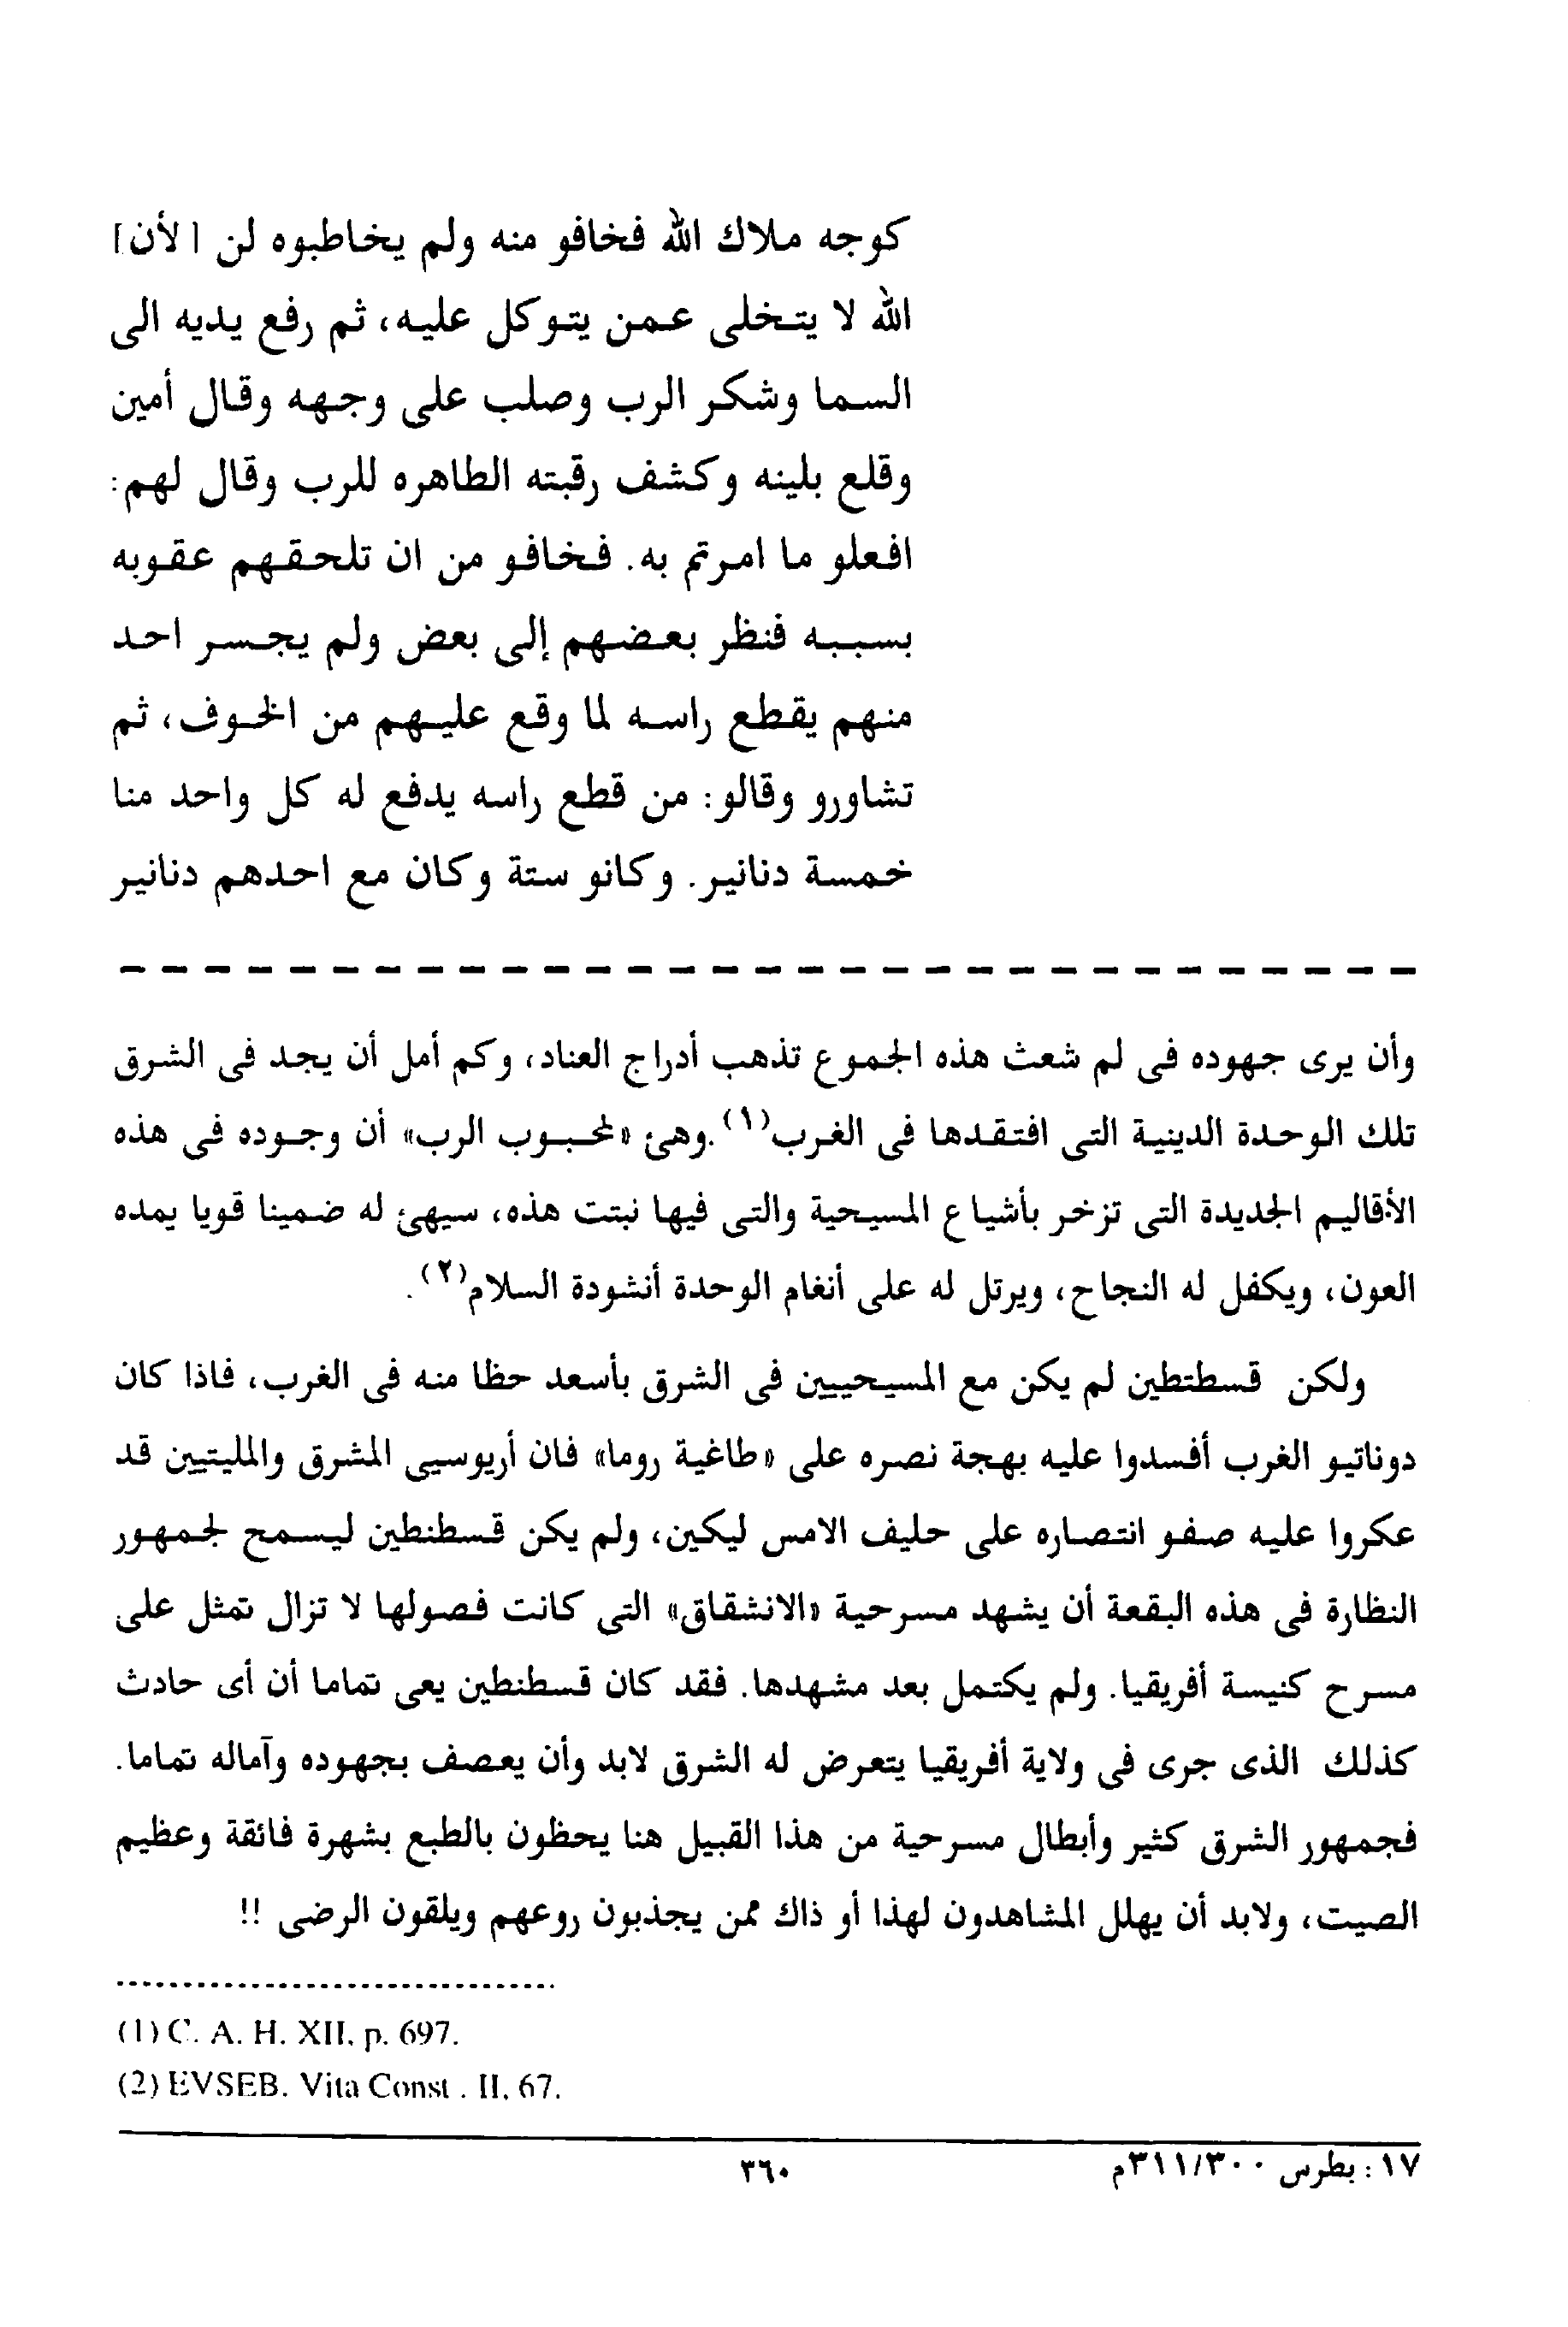 كوجه ملاك الله فخافو منه ولم يخاطبوه لن [لأن]
الله لا يتخلى عمن يتوكل عليه، ثم رفع يديه الى
السما وشكر الرب وصلب على وجهه وقال أمين
وقلع بلينه وكشف رقبته الطاهره للرب وقال لهم:
افعلو ما امرتم به. فخافو من ان تلحقهم عقوبه
بسببه فنظر بعضهم إلى بعض ولم يجسر احد
منهم يقطع راسه لما وقع عليهم من الخوف، ثم
تشاورو وقالو: من قطع راسه يدفع له كل واحد منا
خمسة دنانير. وكانو ستة وكان مع احدهم دنانير
وأن يرى جهوده فى لم شعث هذه الجموع تذهب أدراج العناد، وكم أمل أن يجد فى الشرق
تلك الوحدة الدينية التى افتقدها فى الغرب(١).وهئ «لمحبوب الرب» أن وجوده فى هذه
الأقاليم الجديدة التى تزخر بأشياع المسيحية والتى فيها نبتت هذه، سيهئ له ضمينا قويا يمده
العون، ويكفل له النجاح، ويرتل له على أنغام الوحدة أنشودة السلام(٢).
ولكن قسطتطين لم يكن مع المسيحيين فى الشرق بأسعد حظا منه فى الغرب، فاذا كان
دوناتيو الغرب أفسدوا عليه بهجة نصره على «طاغية روما» فان أريوسيى المشرق والمليتيين قد
عكروا عليه صفو انتصاره على حليف الامس ليكين، ولم يكن قسطنطين ليسمح لجمهور
النظارة فى هذه البقعة أن يشهد مسرحية «الانشقاق» التى كانت فصولها لا تزال تمثل على
مسرح كنيسة أفريقيا. ولم يكتمل بعد مشهدها. فقد كان قسطنطين يعى تماما أن أى حادث
كذلك الذى جرى فى ولاية أفريقيا يتعرض له الشرق لابد وأن يعصف بجهوده وآماله تماما.
فجمهور الشرق كثير وأبطال مسرحية من هذا القبيل هنا يحظون بالطبع بشهرة فائقة وعظيم
الصيت، ولابد أن يهلل المشاهدون لهذا أو ذاك ممن يجذبون روعهم ويلقون الرضى !!
(1) C. A. H. XII, p. 697.
(2) EVSEB. Vita Const . II, 67.
١٧ : بطرس ٣١١/٣٠٠م
٣٦٠